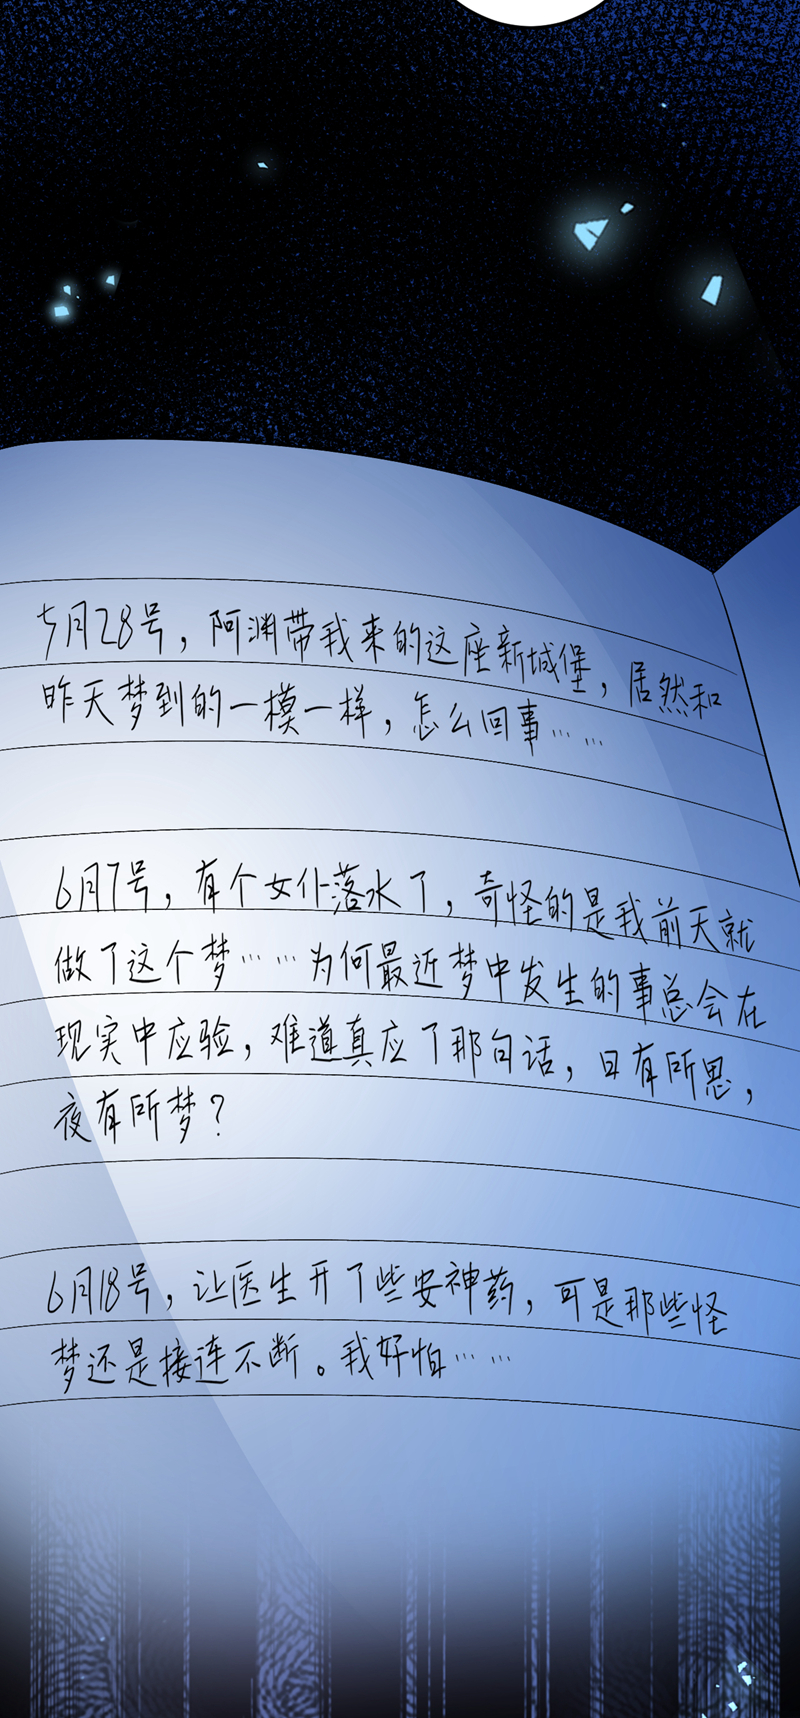 5月28号，阿渊带我来的这座新城堡，居然和
昨天梦到的一模一样，怎么回事……
6月7号，有个女仆落水了，奇怪的是我前天就
做了这个梦……为何最近梦中发生的事总会在
现实中应验，难道真应了那句话，日有所思，
夜有所梦？
6月18号，让医生开了些安神药，可是那些怪
梦还是接连不断。我好怕……